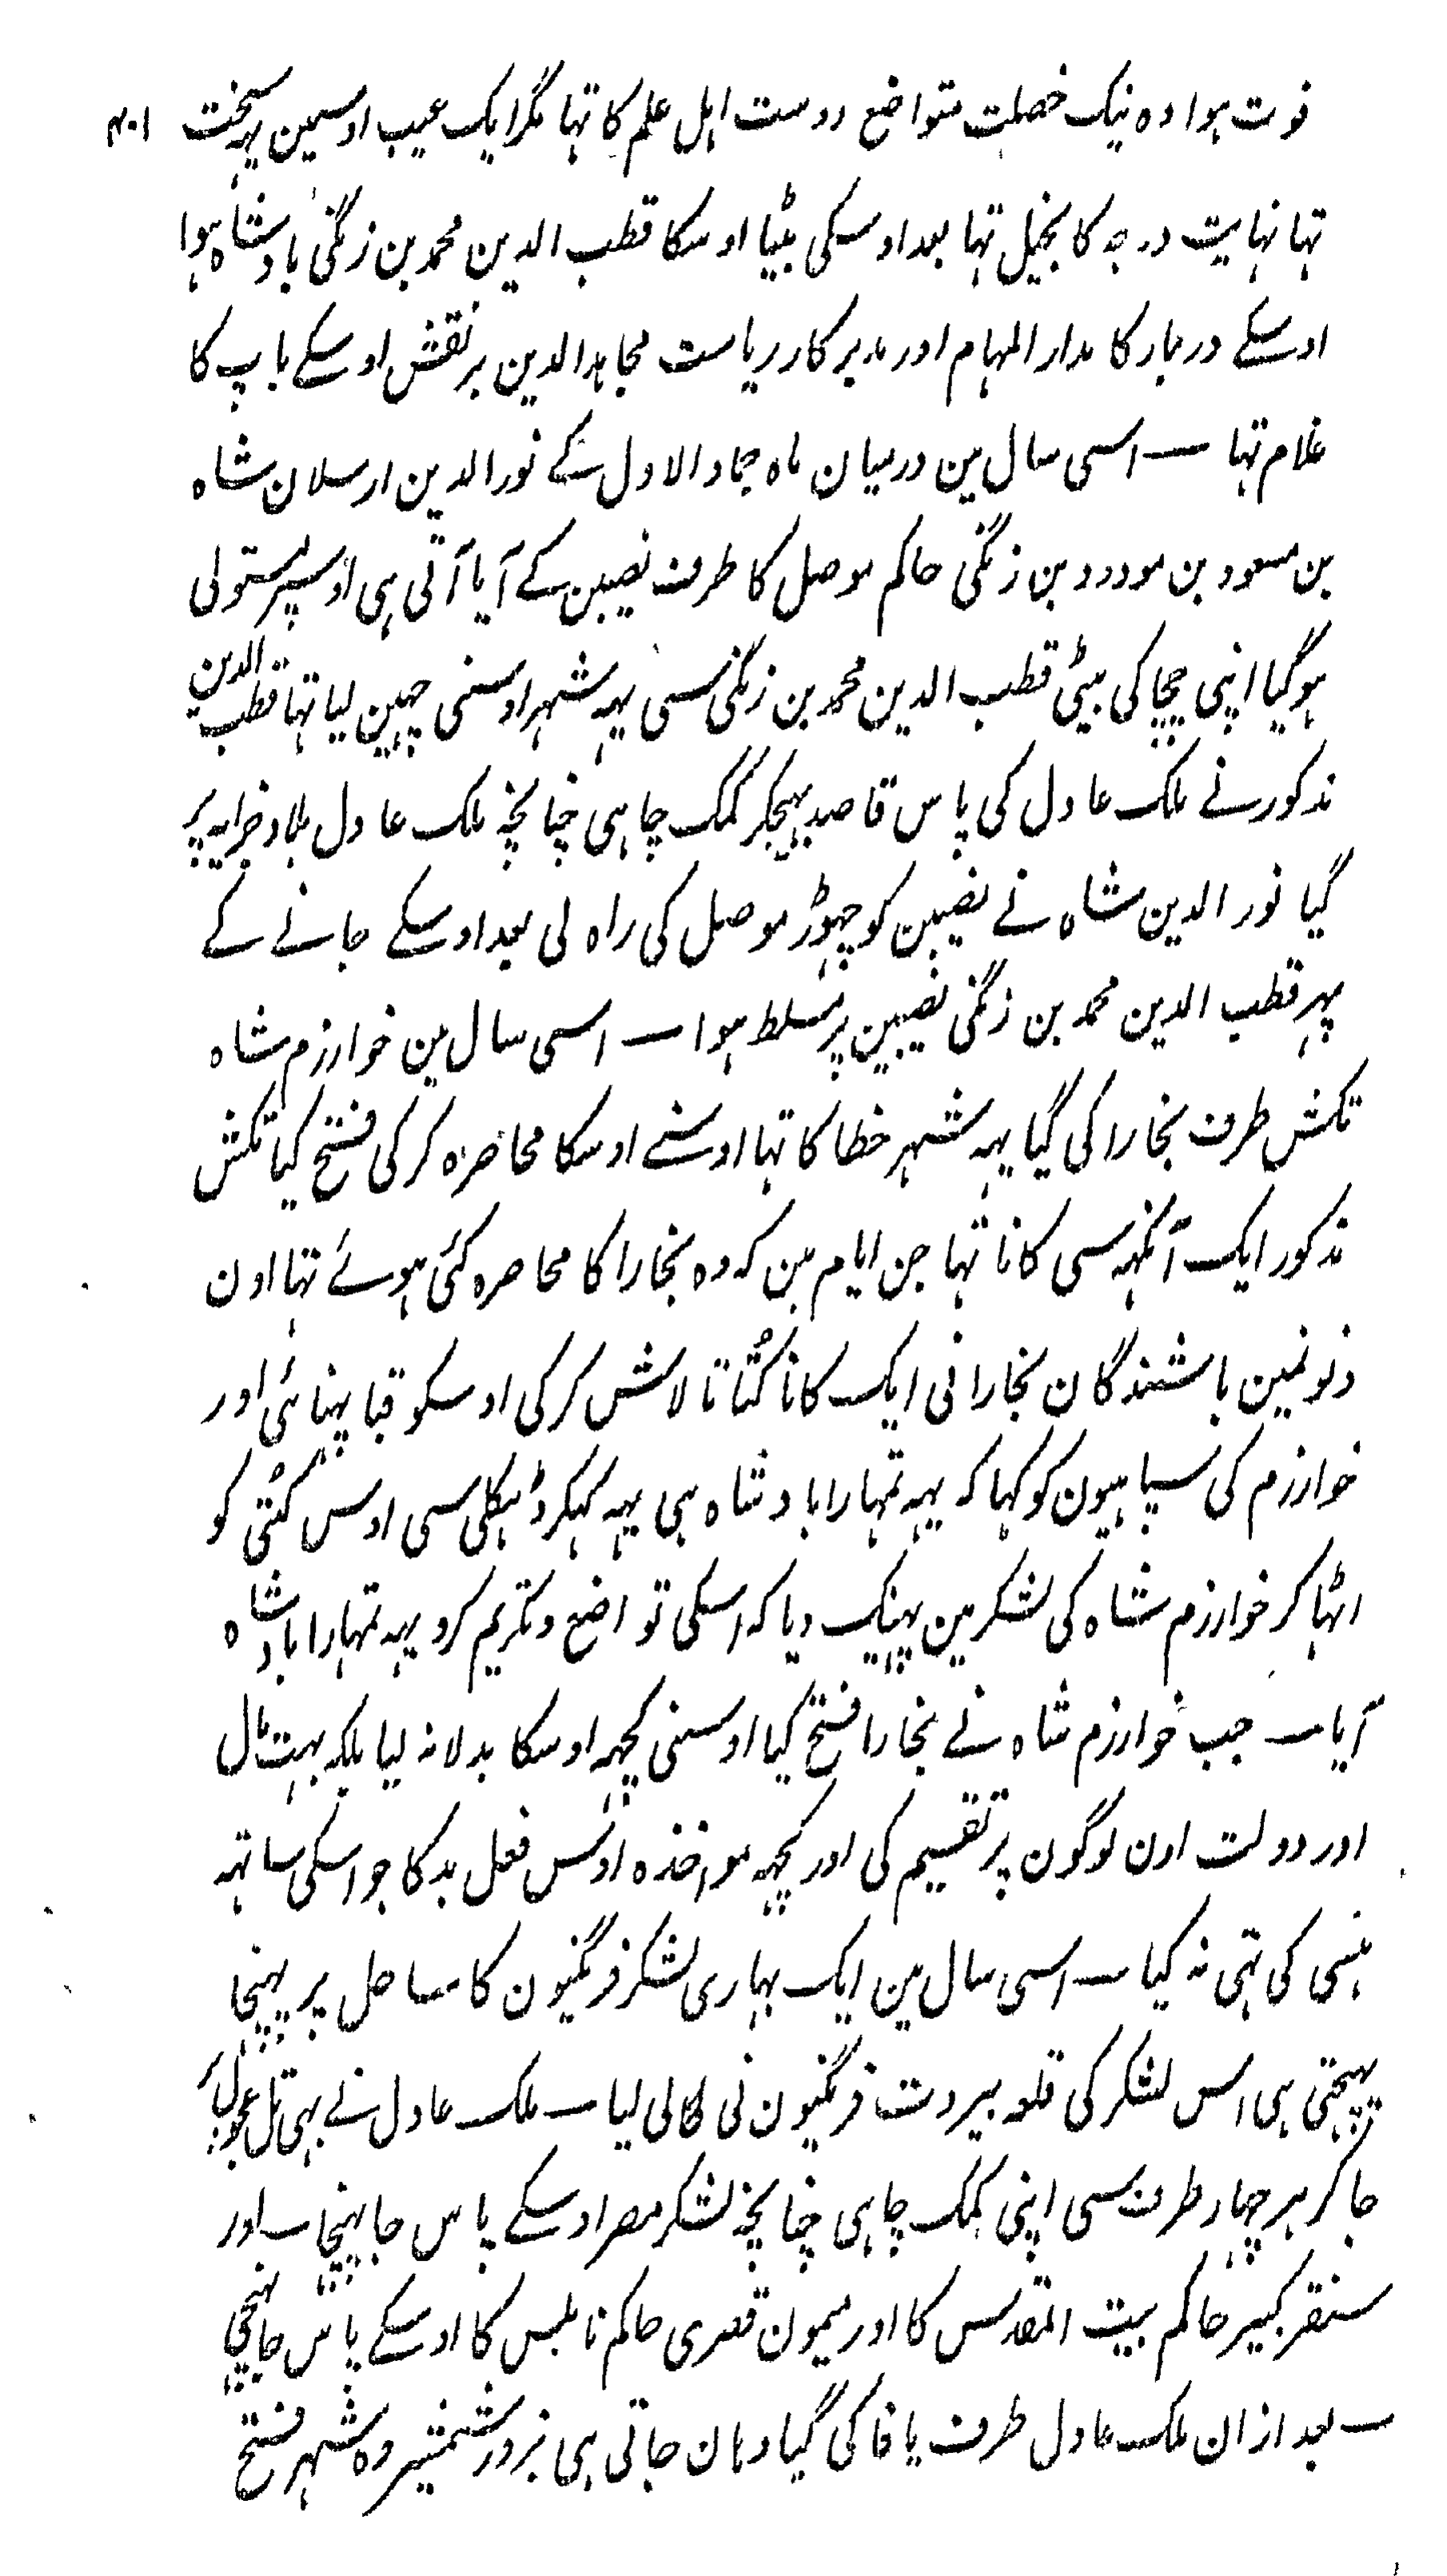 فوت ہوا وہ نیک خصلت متواضع دوست اہل علم کا تہا مگر ایک عیب اوسمین یہہ سخت ۴۰۱
تہا نہایت درجہ کا بخیل تہا بعد اوسکی بیٹا اوسکا قطب الدین محمد بن زنگی بادشاہ ہوا
اوسکے دربار کا مدار المہام اور مدبر کار ریاست مجاہد الدین برنقش اوسکے باپ کا
غلام تہا ــ اسی سال مین درمیان ماہ جماد الاول کے نور الدین ارسلان شاہ
بن مسعود بن مودود بن زنگی حاکم موصل کا طرف نصیبن کے آیا آتی ہی اوسپر مستولی
ہو گیا اپنی چچا کی بیٹی قطب الدین محمد بن زنگی سی یہہ شہر اوسنی چہین لیا تہا قطب الدین
مذکور نے ملک عادل کی پاس قاصد بہیجکر کمک چاہی چنانچہ ملک عادل بلاد جزایہ پر
گیا نور الدین شاہ نے نصیبن کو چہوڑ موصل کی راہ لی بعد اوسکے جانے کے
پہر قطب الدین محمد بن زنگی نصیبین پر مسلط ہوا ــ اسی سال مین خوارزم شاہ
تکش طرف بخارا کی گیا یہہ شہر خطا کا تہا اوسنے اوسکا محاصرہ کر کی فتح کیا تکش
مذکور ایک آنکہہ سی کانا تہا جن ایام مین کہ وہ بخارا کا محاصرہ کئی ہوئے تہا اون
دنونمین باشندگان بخارا نی ایک کانا کُتا تالاش کر کی اوسکو قبا پہنائی اور
خوارزم کی سپاہیون کو کہا کہ یہہ تمہارا بادشاہ ہی یہہ کہکر ڈہیکلی سی اوس کُتی کو
اٹہا کر خوارزم شاہ کی لشکر مین پہینک دیا کہ اسکی تواضع و تکریم کرو یہہ تمہارا بادشاہ
آیا ــ جب خوارزم شاہ نے بخارا فتح کیا اوسنی کچہہ اوسکا بدلا نہ لیا بلکہ بہت مال
اور دولت اون لوگون پر تقسیم کی اور کچہہ مواخذہ اوس فعل بد کا جو اسکی ساتہہ
ہنسی کی تہی نہ کیا ــ اسی سال مین ایک بہاری لشکر فرنگیون کا ساحل پر پہنچا
پہنچتی ہی اس لشکر کی قلعہ بیروت فرنگیون نی لیا ــ ملک عادل نے بہی تل عجول پر
جا کر ہر چہار طرف سی اپنی کمک چاہی چنانچہ لشکر مصر اوسکے پاس جا پہنچا ــ اور
سنقر کبیر حاکم بیت المقدس کا اور میمون قصری حاکم نابلس کا اوسکے پاس جا پہنچی
ــ بعد ازان ملک عادل طرف یافا کی گیا وہان جاتی ہی بزور شمشیر وہ شہر فتح